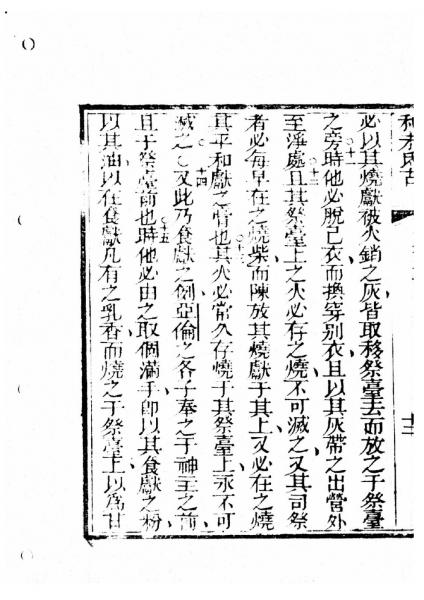 利未氏古
十二
必以其燒獻被火銷之灰皆取移祭臺去而放之于祭臺
之旁十一時他必脫己衣而換穿別衣且以其灰帶之出營外
至淨處十二且其祭臺上之火必存之燒不可滅之又其司祭
者必每早在之燒柴而陳放其燒獻于其上又必在之燒
其平和獻之膏也十三其火必常久存燒于其祭臺上永不可
滅之十四又此乃食獻之例亞倫之各子奉之于神主之前
且于祭臺前也十五時他必由之取個滿手卽以其食獻之粉
以其油以在食獻凡有之乳香而燒之于祭臺上以爲甘